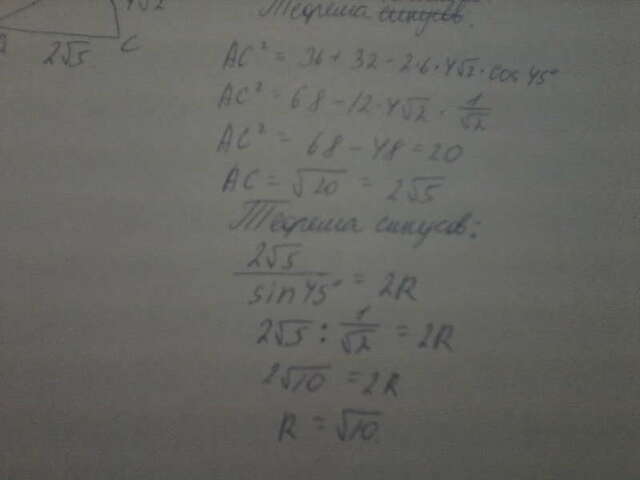 4√2
2√5 C
Теорема синусов.
AC² = 36 + 32 - 2·6·4√2·cos 45°
AC² = 68 - 12·4√2 · 1/√2
AC² = 68 - 48 = 20
AC = √20 = 2√5
Теорема синусов:
2√5 / sin 45° = 2R
2√5 : 1/√2 = 2R
2√10 = 2R
R = √10